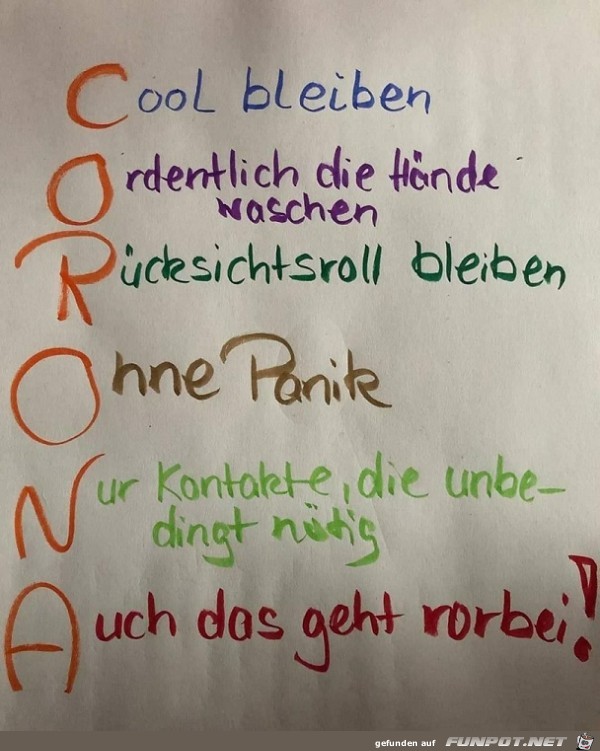 Cool bleiben
Ordentlich die Hände
waschen
Rücksichtsvoll bleiben
Ohne Panik
Nur Kontakte, die unbe-
dingt nötig
Auch das geht vorbei!
gefunden auf FUNPOT.NET